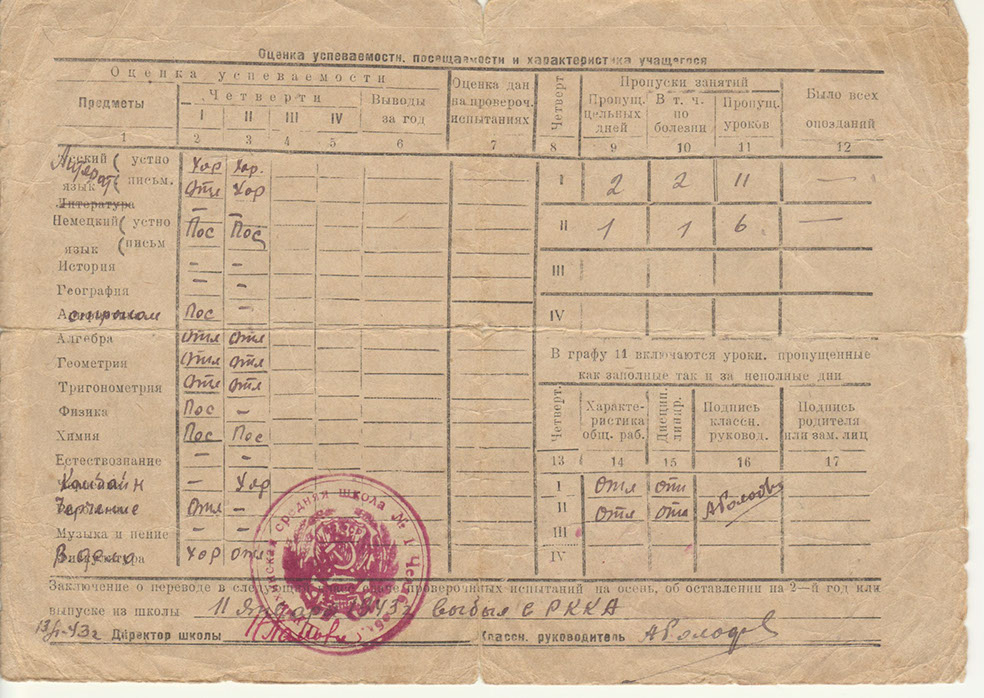 Оценка успеваемости, посещаемости и характеристика учащегося
Оценка успеваемости
Предметы
Четверти
Выводы за год
Оценка дан на провероч. испытаниях
I II III IV
1 2 3 4 5 6 7
Литерат
язык
( устно Хор Хор.
( письм. Отл Хор
Литература – –
Немецкий ( устно Пос Пос
язык ( письм
История – –
География – –
Астроном Пос –
Алгебра Отл Отл
Геометрия Отл Отл
Тригонометрия Отл Отл
Физика Пос –
Химия Пос Пос
Естествознание – –
Комбайн – Хор
Черчение Отл –
Музыка и пение – –
В. дело Хор Отл
Четверт
Пропуски занятий
Пропущ. цельных дней
В т. ч. по болезни
Пропущ. уроков
Было всех опозданий
8 9 10 11 12
I 2 2 11 —
II 1 1 6 —
III
IV
В графу 11 включаются уроки. пропущенные
как заполные так и за неполные дни
Четверт.
Характе-ристика общ. раб.
Дисцип-линир.
Подпись классн. руковод.
Подпись родителя или зам. лиц
13 14 15 16 17
I Отл Отл
II Отл Отл
III
IV
средняя школа № 1
Заключение о переводе в следующий проверочных испытаний на осень, об оставлении на 2—й год или
выпуске из школы 11 января 1943 г выбыл в РККА
13/I-43 г Директор школы Классн. руководитель